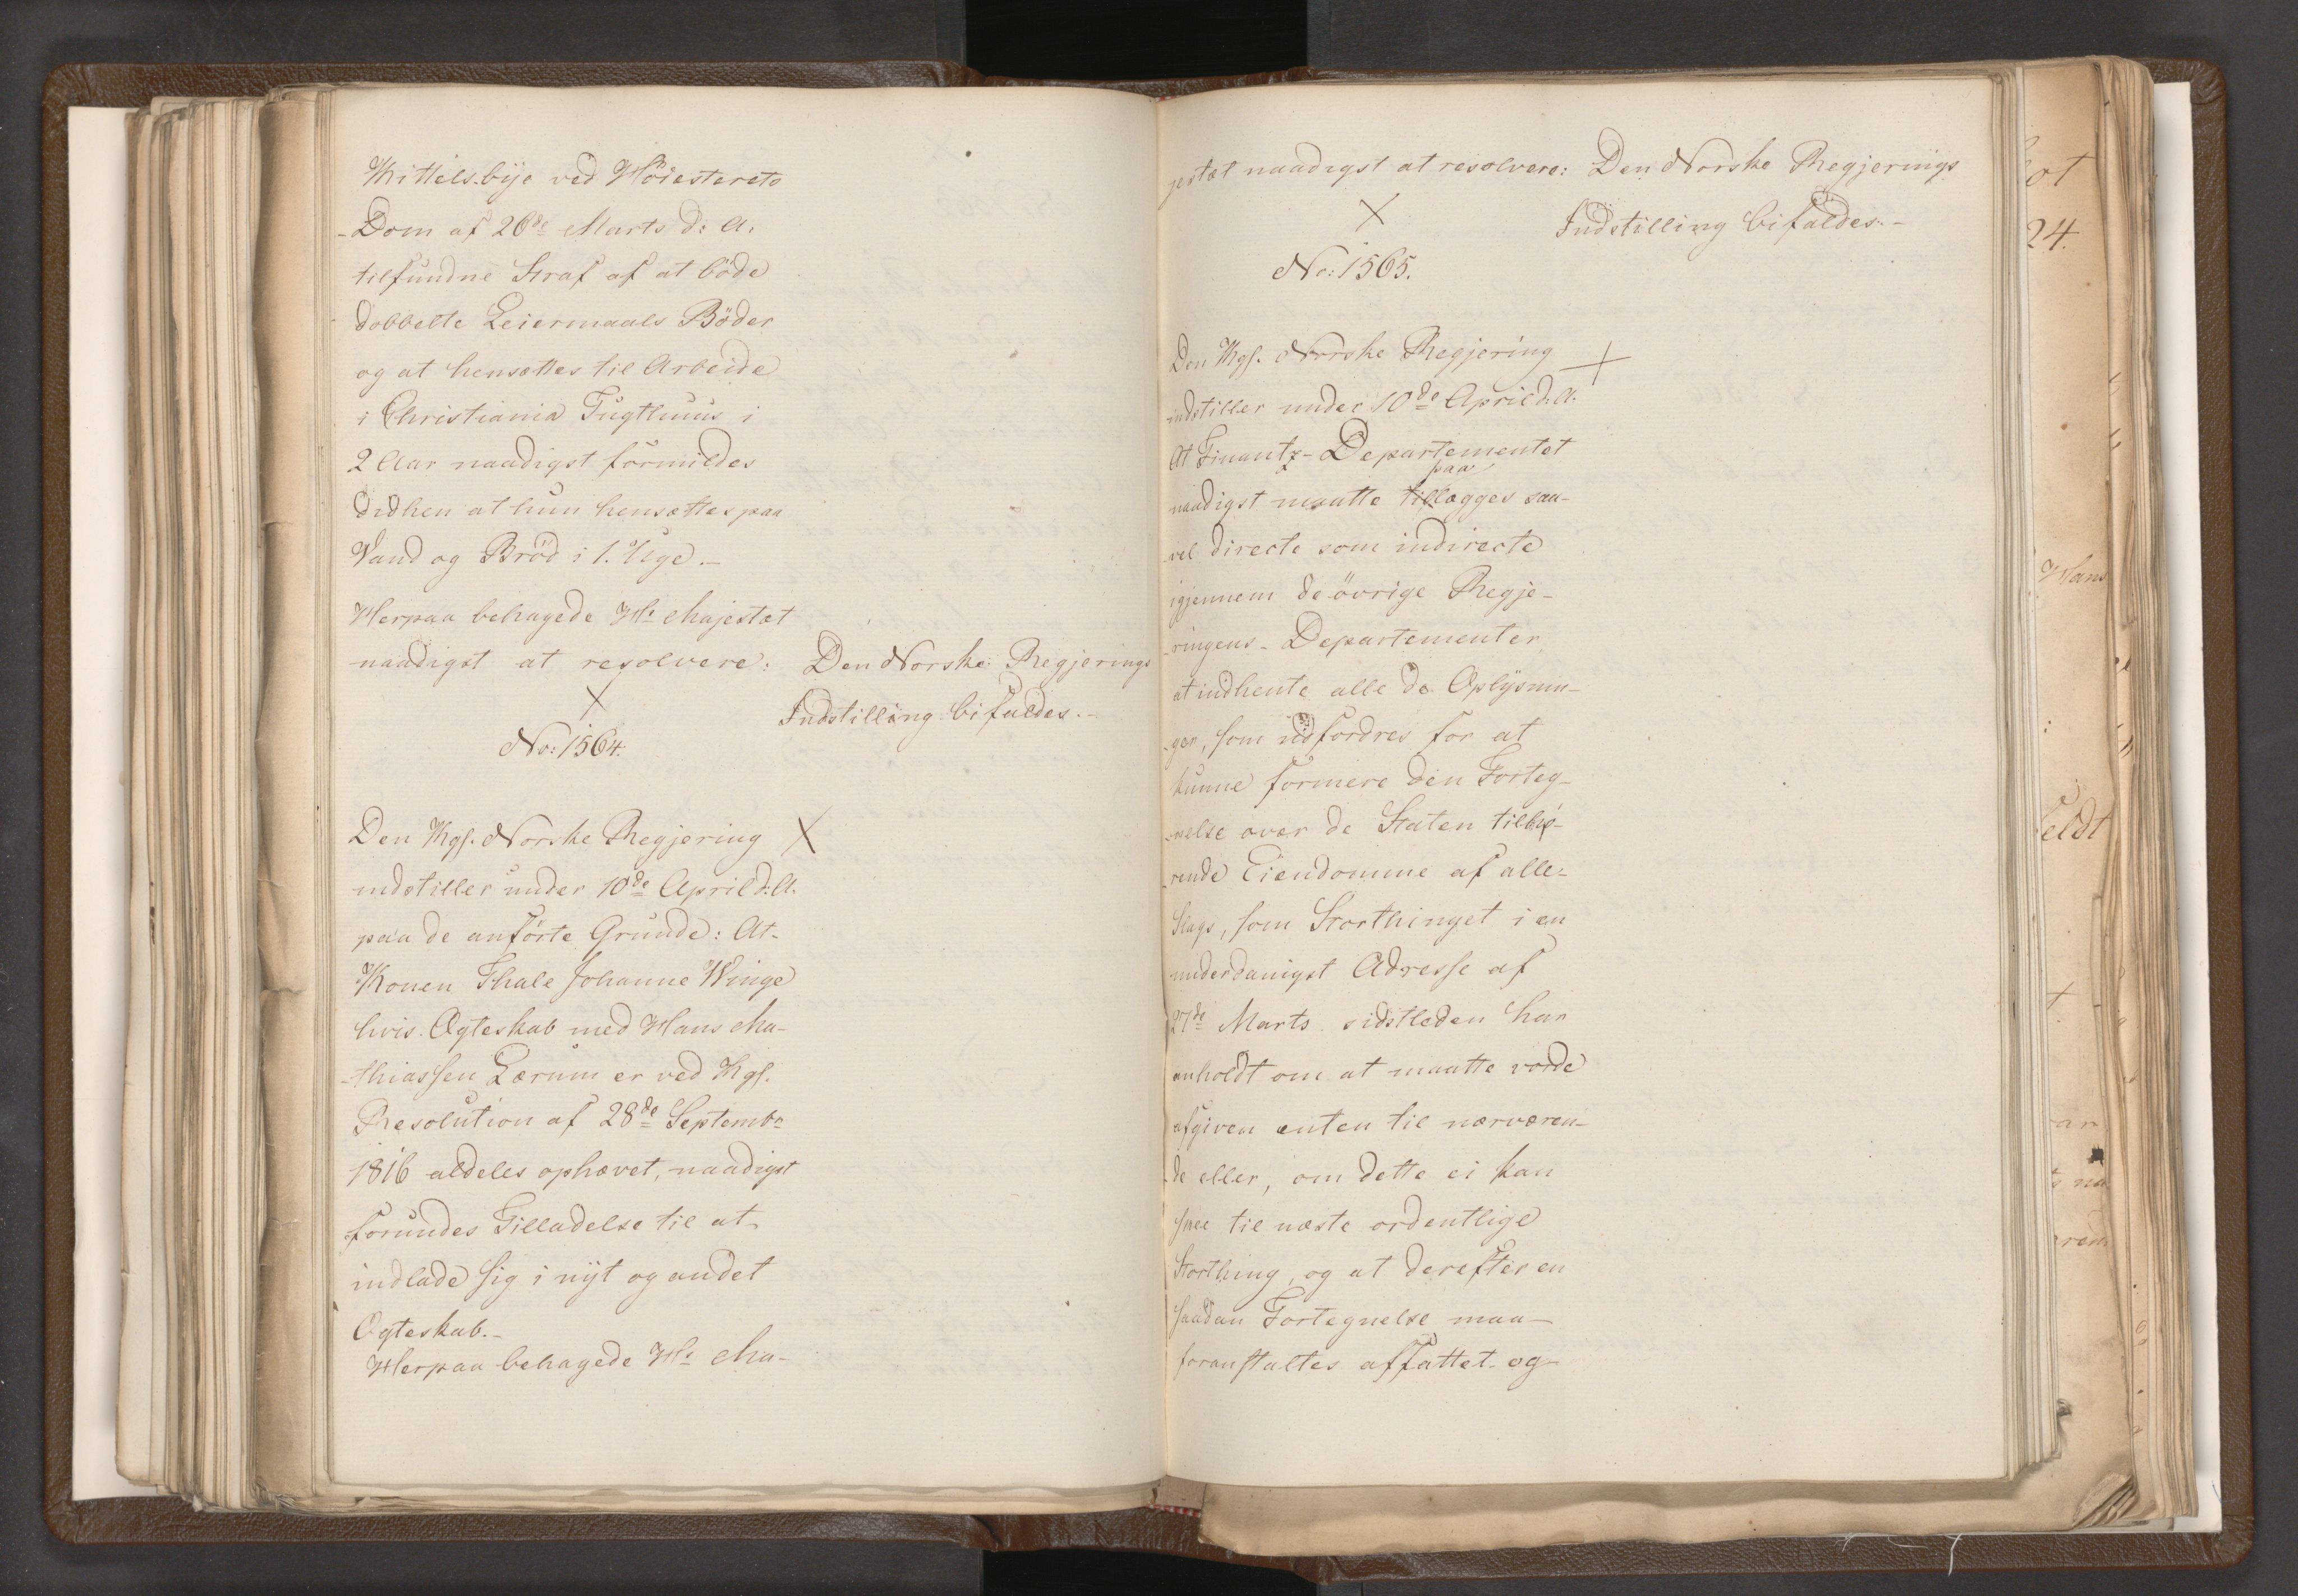 Kittelsbÿe ved Höiesterets
-Dom af 26de Marts d: A.
tilfundne Straf af at böde
dobbelte Leiermaals Böder
og at hensættes til Arbeide
i Christiania Tugthuus i
2 Aar naadigst formildes
didhen at hun hensættes paa
Vand og Bröd i 1. Uge.-
Herpaa behagede Hs Majestæt
naadigst at resolvere: Den Norske Regjerings
Indstilling bifaldes.-
No: 1564.
Den Kgl. Norske Regjering
indstiller under 10de April d: A.
paa de anförte Grunde: At-
Konen Thale Johanne Winge
hvis Ægteskab med Hans Ma-
-thiassen Lærum er ved Kgl.
Resolution af 28de Septembr
1816 aldeles ophævet, naadigst
forundes Tilladelse til at
indlade sig i nÿt og andet
Ægteskab.-
Herpaa behagede Hs Ma-
jestæt naadigst at resolvere: Den Norske Regjerings
Indstilling bifaldes.-
No: 1565.
Den Kgl. Norske Regjering
indstiller under 10de April d: A.
At Finantz-Departementet
paa
naadigst maatte tillægges saa-
-vel directe som indirecte
igjennem de övrige Regje-
-ringens-Departementer
at indhente alle de Oplÿsnin-
-ger, som udfordres for at
kunne formere den Forteg-
-nelse over de Staten tilhö-
-rende Eiendomme af alle-
Slags, som Storthinget i en
underdanigst Adresse af
27de Marts sidstleden har
anholdt om at maatte vorde
afgiven enten til nærværen-
-de eller, om dette ei kan
skee til næste ordentlige
Storthing, og at derefter en
saadan Fortegnelse maa-
foranstaltes affattet og
ot
24.
Hans
eldt